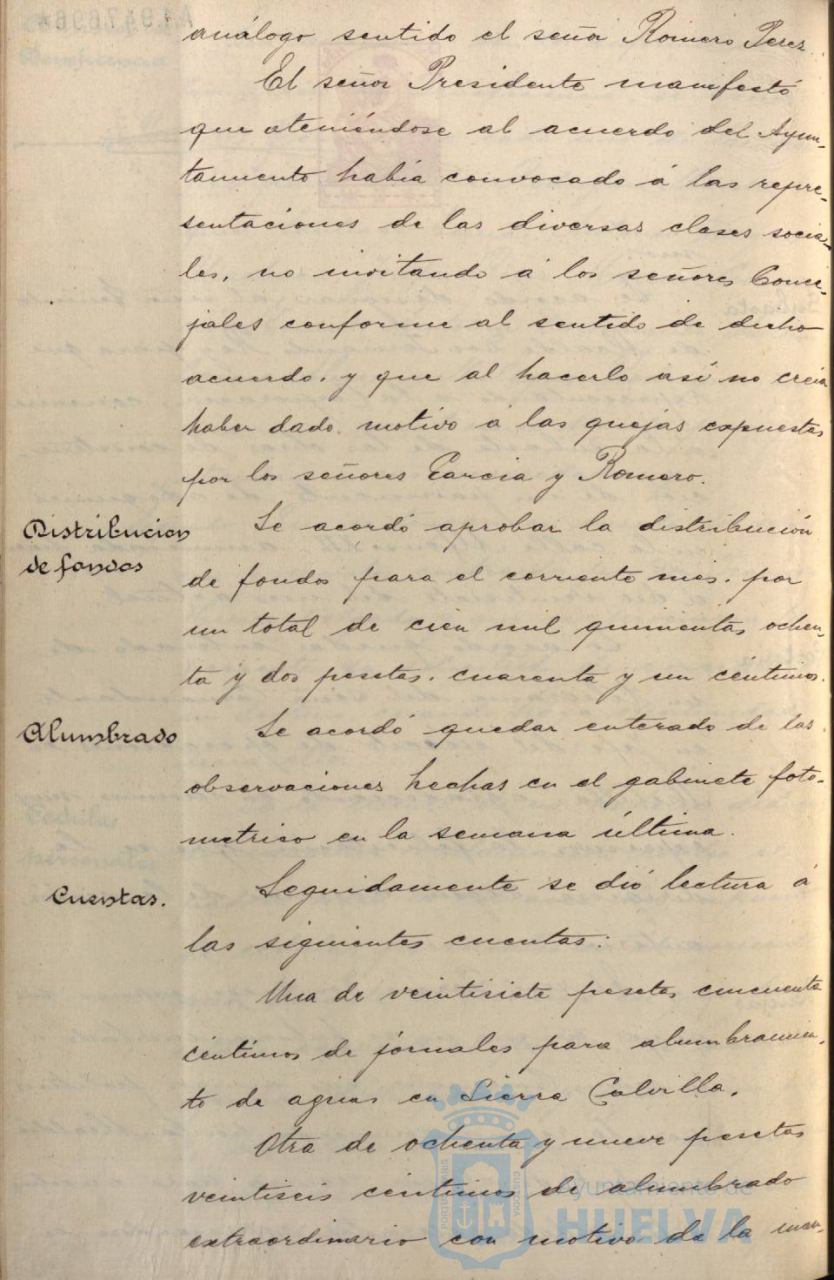 análogo sentido el señor Romero Perez.
El señor Presidente manifestó
que ateniéndose al acuerdo del Ayun-
tamiento había convocado á las repre-
sentaciones de las diversas clases socia-
les, no invitando á los señores Conce-
jales conforme al sentido de dicho
acuerdo, y que al hacerlo así no creia
haber dado motivo á las quejas expuestas
por los señores Garcia y Romero.
Distribucion
de fondos
Se acordó aprobar la distribución
de fondos para el corriente mes, por
un total de cien mil quinientas ochen-
ta y dos pesetas, cuarenta y un céntimos.
Alumbrado
Se acordó quedar enterado de las
observaciones hechas en el gabinete foto-
metrico en la semana última.
Cuentas.
Seguidamente se dió lectura á
las siguientes cuentas:
Una de veintisiete pesetas cincuenta
céntimos de jornales para alumbramien-
to de aguas en Sierra Calvilla.
Otra de ochenta y nueve pesetas
veintiseis centimos de alumbrado
extraordinario con motivo de la
Ayuntamiento de
HUELVA